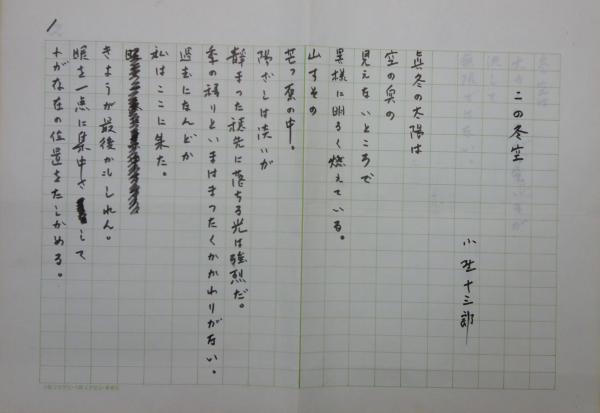 1
この冬空
小野十三郎
眞冬の太陽は
空の奥の
見えないところで
異様に明るく燃えている。
山すその
芒っ原の中。
陽ざしは淡いが
静まった穂先に落ちる光は強烈だ。
季の移りといまはまったくかかわりがない。
過去になんどか
私はここに来た。
きょうが最後かもしれん。
眼を一点に集中さして
わが存在の位置をたしかめる。